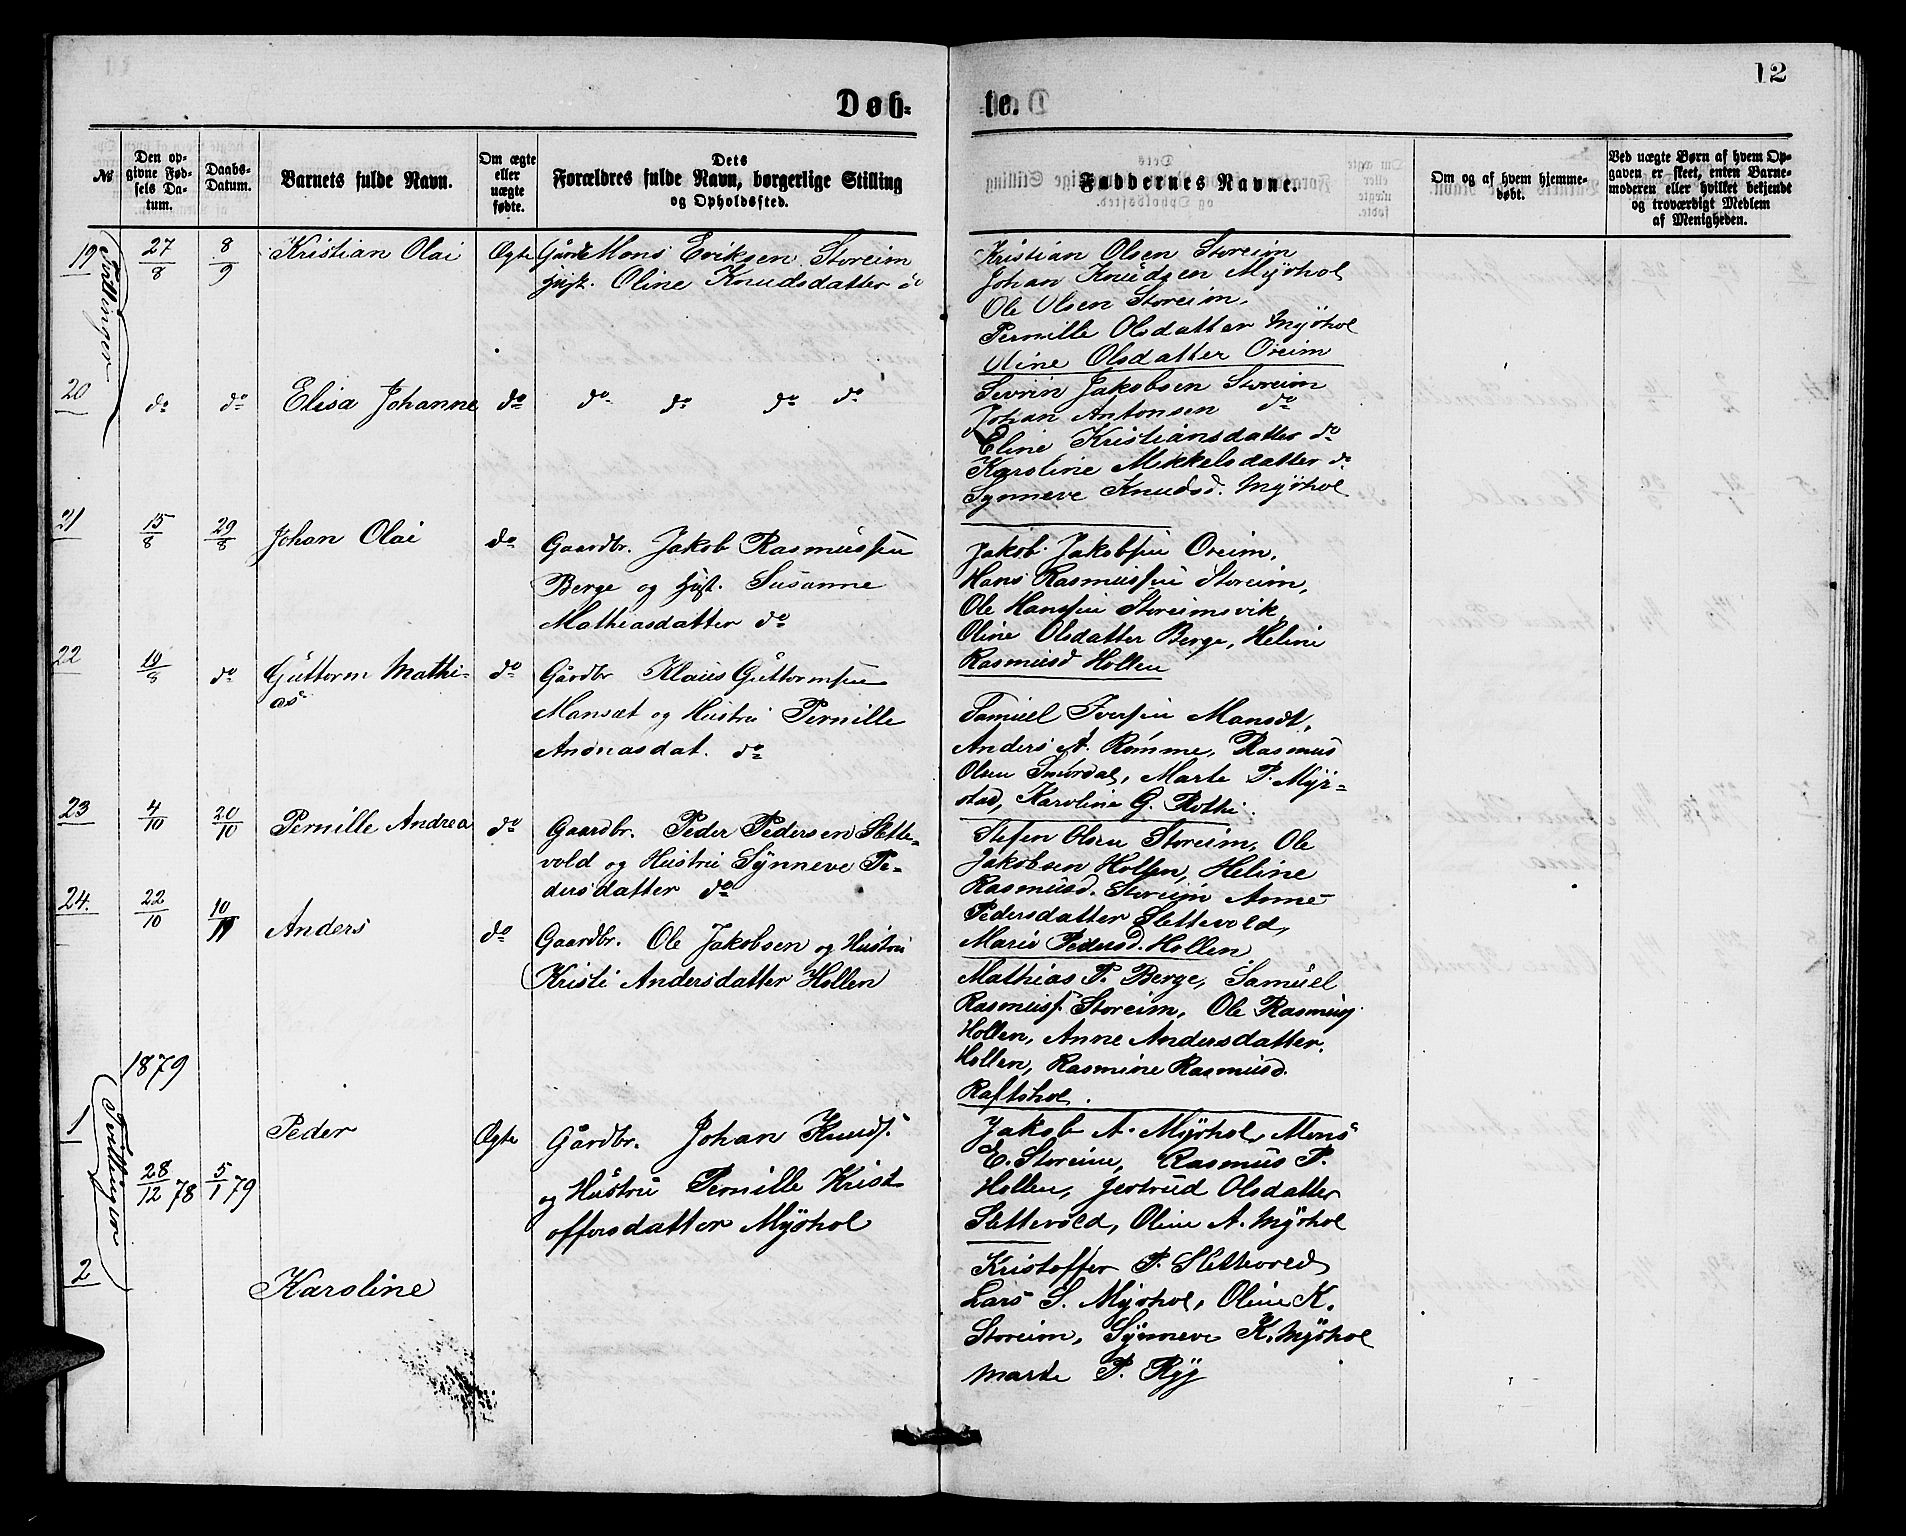 12
Døb-
te.
№
Den op-
givne Fød-
sels Da-
tum.
Daabs-
Datum.
Barnets fulde Navn.
Om ægte
eller
uægte
fødte.
Dets
Forældres fulde Navn, borgerlige Stilling
og Opholdssted.
Faddernes Navne.
Om og af hvem hjemme-
døbt.
Ved uægte Børn af hvem Op-
gaven er skeet, enten Barne-
moderen eller hvilket bekjendt
og troværdigt Medlem
af Menigheden.
Tvillinger
19 27/8 8/9 Kristian Olai Ægte Mons Eriksen Storeim
Hust. Oline Knudsdatter do
Kristian Olsen Storeim
Johan Knudsen Myrhol
Ole Olsen Storeim,
Pernille Olsdatter Myrhol
Oline Olsdatter Oreim
20 do do Elisa Johanne do do do do do
Sevrin Jakobsen Storeim
Johan Antonsen do
Eline Kristiansdatter do
Karoline Mikkelsdatter do
Synneve Knudsd. Myrhol
21 15/8 29/8 Johan Olai do Gaardbr. Jakob Rasmussen
Berge og Hust. Susanne
Mathiasdatter do
Jakob Jakobsen Oreim,
Hans Rasmussen Storeim,
Ole Hansen Storeimsvik,
Oline Olsdatter Berge, Heline
Rasmusd Hollen
22 19/8 do Guttorm Mathi-
as do Gårdbr Klaus Guttormsen
Mansæt og Hustru Pernille
Andreasdat. do
Samuel Iversen Mansæt,
Anders A. Romme, Rasmus
Olsen Smørdal, Marte P. Myr-
stad, Karoline G. Rothi.
23 4/10 20/10 Pernille Andrea do Gaardbr. Peder Pedersen Slette-
vold og Hustru Synneve Pe-
dersdatter do
Stefen Olsen Storeim, Ole
Jakobsen Hollen, Heline
Rasmusd. Storeim Anne
Pedersdatter Slettevold,
Marie Pedersd. Hollen
24. 22/10 10/11 Anders do Gaardbr. Ole Jakobsen og Hustru
Kristi Andersdatter Hollen
Mathias P. Berge, Samuel
Rasmuss. Storeim, Ole Rasmuss.
Hollen, Anne Andersdatter
Hollen, Rasmine Rasmusd.
Raftshol.
1879
Tvillinger
1 28/12 78 5/1 79 Peder Ægte Gårdbr. Johan Knuds.
og Hustru Pernille Krist
offersdatter Myrhol
Jakob A. Myrhol, Mons
E. Storeim, Rasmus P.
Hollen, Jertrud Olsdatter
Slettevold, Oline A. Myrhol
2 Karoline
Kristoffer P. Slettevold
Lars S. Myrhol, Oline K.
Storeim, Synneve K. Myrhol
Marte P. Ryg